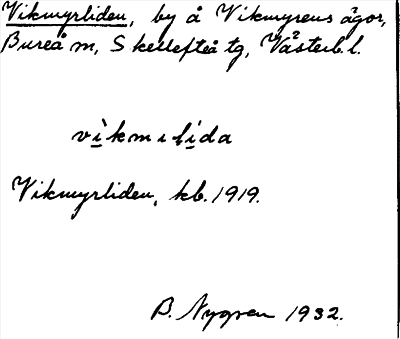 Vikmyrliden, by å Vikmyrens ägor,
Bureå m, Skellefteå tg, Västerb.l.
vìkmıḷịda
Vikmyrliden, kb. 1919.
B. Nygren 1932.